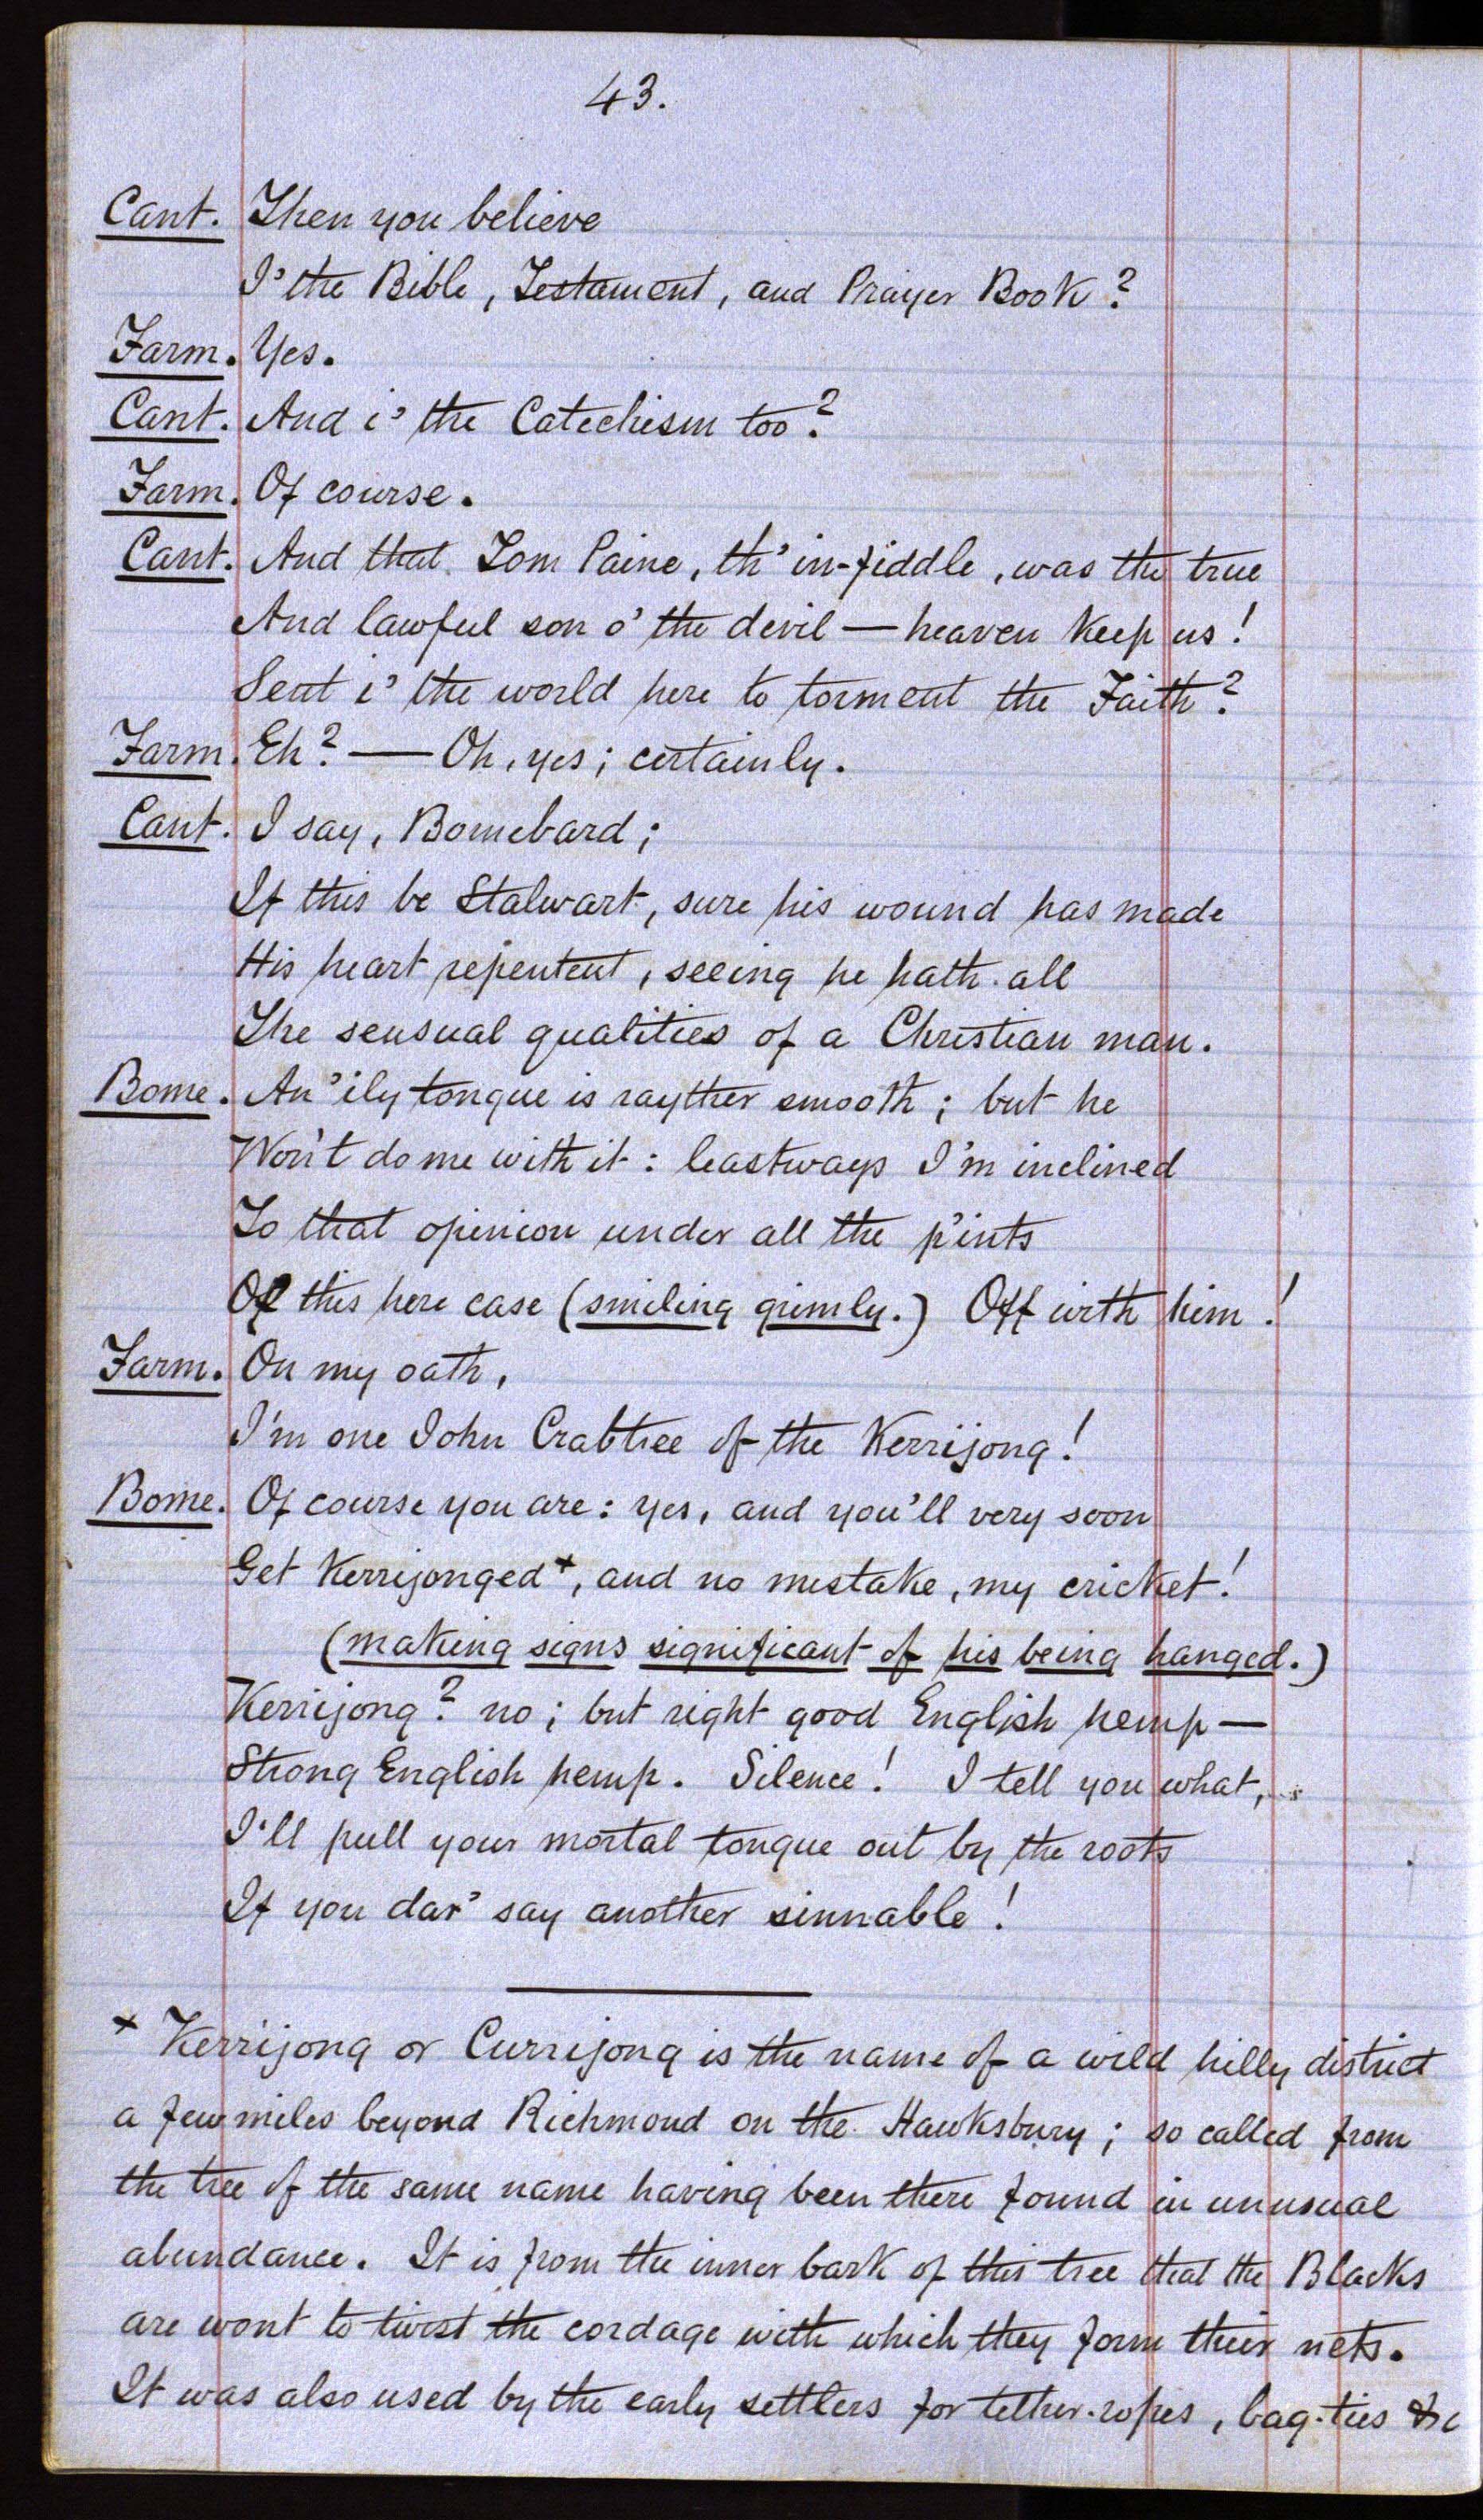 43.
Cant. Then you believe
I' the Bible, Testament, and Prayer Book?
Farm. Yes.
Cant. And i' the Catechism too?
Farm. Of course.
Cant. And that Tom Paine, th' in-fiddle, was the true
And lawful son o' the devil — heaven keep us!
Sent i' the world here to torment the Faith?
Farm. Eh? — Oh, yes; certainly.
Cant. I say, Bomebard;
If this be Stalwart, sure his wound has made
His heart repentent, seeing he hath all
The sensual qualities of a Christian man.
Bome. An' ily tongue is rayther smooth; but he
Won't do me with it: leastways I'm inclined
To that opinion under all the p'ints
Of this here case (smiling grimly.) Off with him!
Farm. On my oath,
I'm one John Crabtree of the Kerrijong!
Bome. Of course you are: yes, and you'll very soon
Get Kerrijonged+, and no mistake, my cricket!
(making signs significant of his being hanged.)
Kerrijong? no; but right good English hemp —
Strong English hemp. Silence! I tell you what,
I'll pull your mortal tongue out by the roots
If you dar' say another sinnable!
+ Kerrijong or Currijong is the name of a wild hilly district
a few miles beyond Richmond on the Hawksbury; so called from
the tree of the same name having been there found in unusual
abundance. It is from the inner bark of this tree that the Blacks
are wont to twist the cordage with which they form their nets.
It was also used by the early settlers for tether-ropes, bag-ties &c